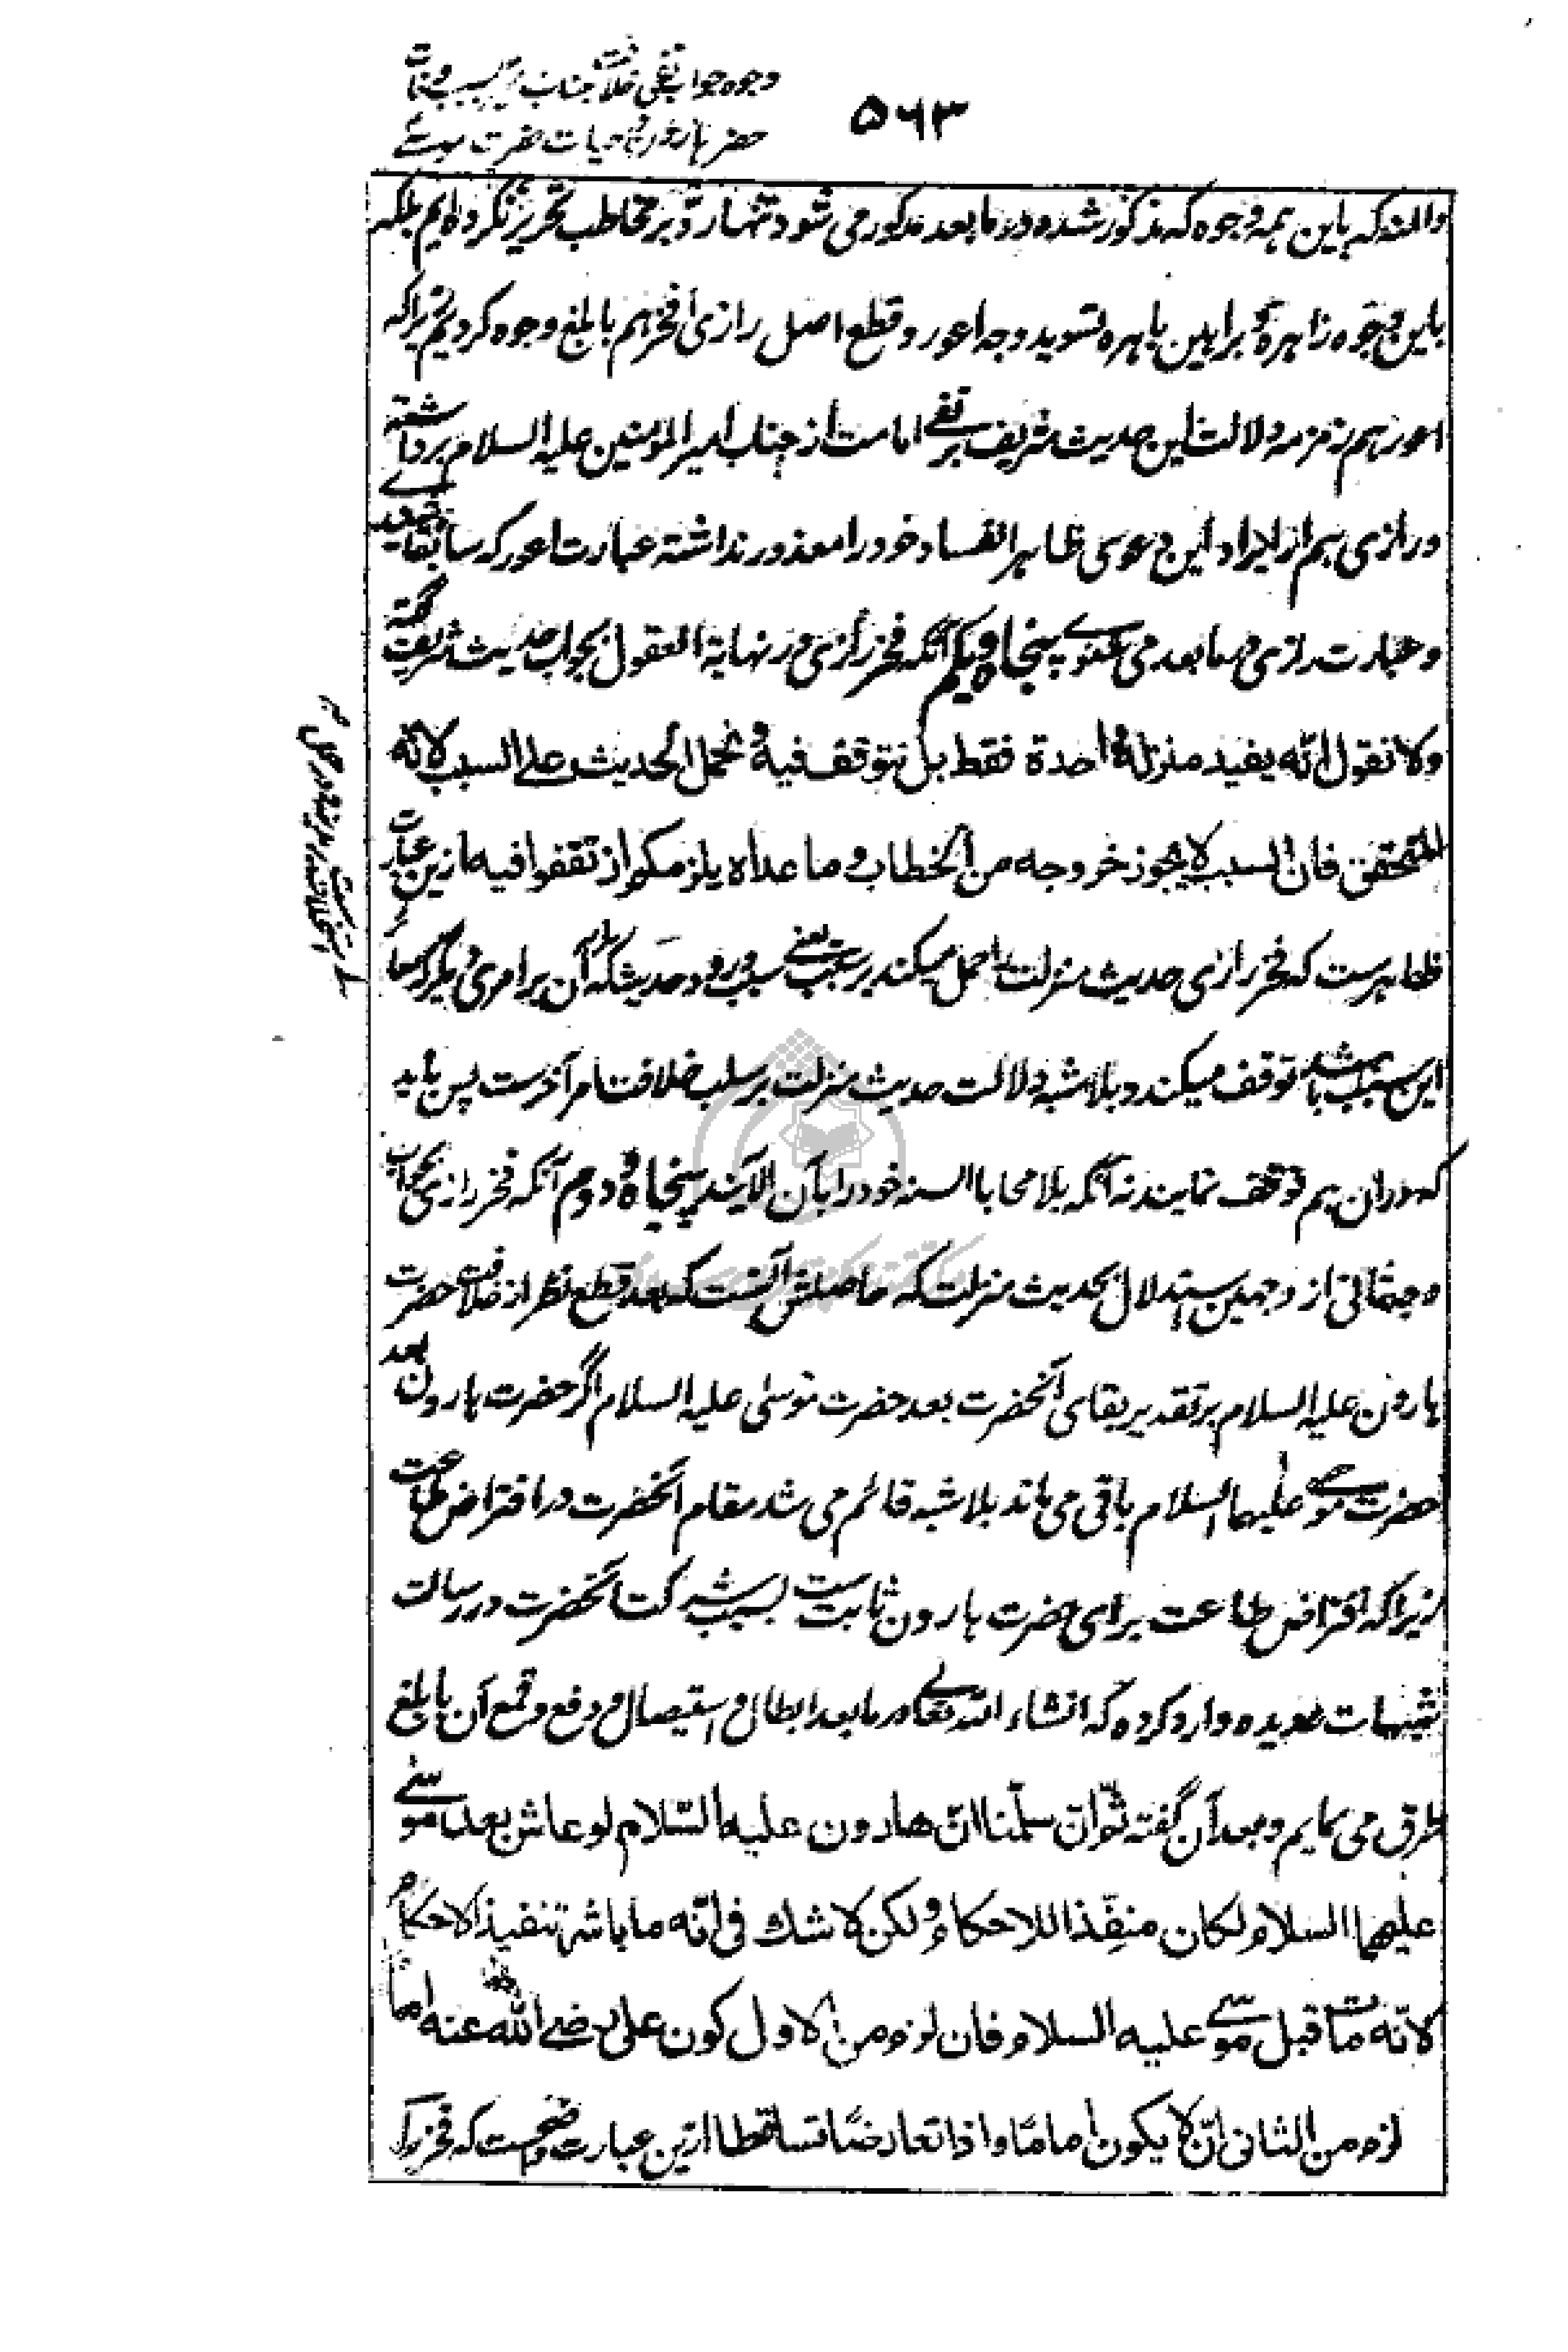 وجوه جواب نفی خلافت جناب امیر بسبب وفات
۵۶۳
حضرت هارون در حیات حضرت موسے
والمنه که باین همه وجوه که مذکور شده و در ما بعد مذکور می شود تنها رد بر مخاطب تحریر نکرده ایم بلکه
باین وجوه زاهره و براهین باهره تسوید وجه اعور و قطع اصل رازی افخر هم بابلغ وجوه کردیم زیرا که
اعور هم زمزمه دلالت این حدیث شریف بر نفے امامت از جناب امیر المؤمنین علیه السلام برداشته
و رازی هم از ایراد این دعوی ظاهر الفساد خود را معذور نداشته عبارت اعور که سابقا شنیدے
و عبارت رازی در ما بعد می شنوے پنجاه و یکم آنکه فخر رازی در نهایة العقول بجواب حدیث شریف گفته
ولا نقول انّه يفيد منزلة واحدة فقط بل نتوقف فيه و نحمل الحديث على السبب لانّه
المتحقق فان السبب لا يجوز خروجه من الخطاب و ما عداه يلزمكم ان تقفوا فيه ازین عبارت
ظاهرست که فخر رازی حدیث منزلت را حمل میکند بر سبب یعنے سبب ورود حدیث و در دلالت آن بر امری دیگر که سوای
این سبب باشد توقف میکند و بلا شبه دلالت حدیث منزلت بر سلب خلافت امر آخرست پس باید
که در ان هم توقف نمایند نه آنکه بلا محابا السنه خود را بآن آلایند پنجاه و دوم آنکه فخر رازی بجواب
وجه ثانی از وجهین استدلال بحدیث منزلت که حاصلش آنست که بعد قطع نظر از خلافت حضرت
هارون علیه السلام بر تقدیر بقای آنحضرت بعد حضرت موسی علیه السلام اگر حضرت هارون بعد
حضرت موسے علیهما السلام باقی می ماند بلا شبه قائم می شد مقام آنحضرت در افتراض طاعت
زیرا که افتراض طاعت برای حضرت هارون ثابت ست بسبب شرکت آنحضرت در رسالت
شبهات عدیده وارد کرده که انشاء الله تعالے در ما بعد ابطال و استیصال و دفع و قمع آن بابلغ
طرق می نمایم و بعد آن گفته ثم ان سلّمنا انّ هارون عليه السّلام لو عاش بعد موسے
عليهما السلام لكان منفّذا للاحكام و لكن لا شك فى انّه ما باشر تنفيذ الاحكام
لانّه مات قبل موسے عليه السلام فان لزم من الاول كون على رضے الله عنه اماما
لزم من الثانى ان لا يكون اماما و اذا تعارضا تساقطا ازین عبارت واضح ست که فخر رازی